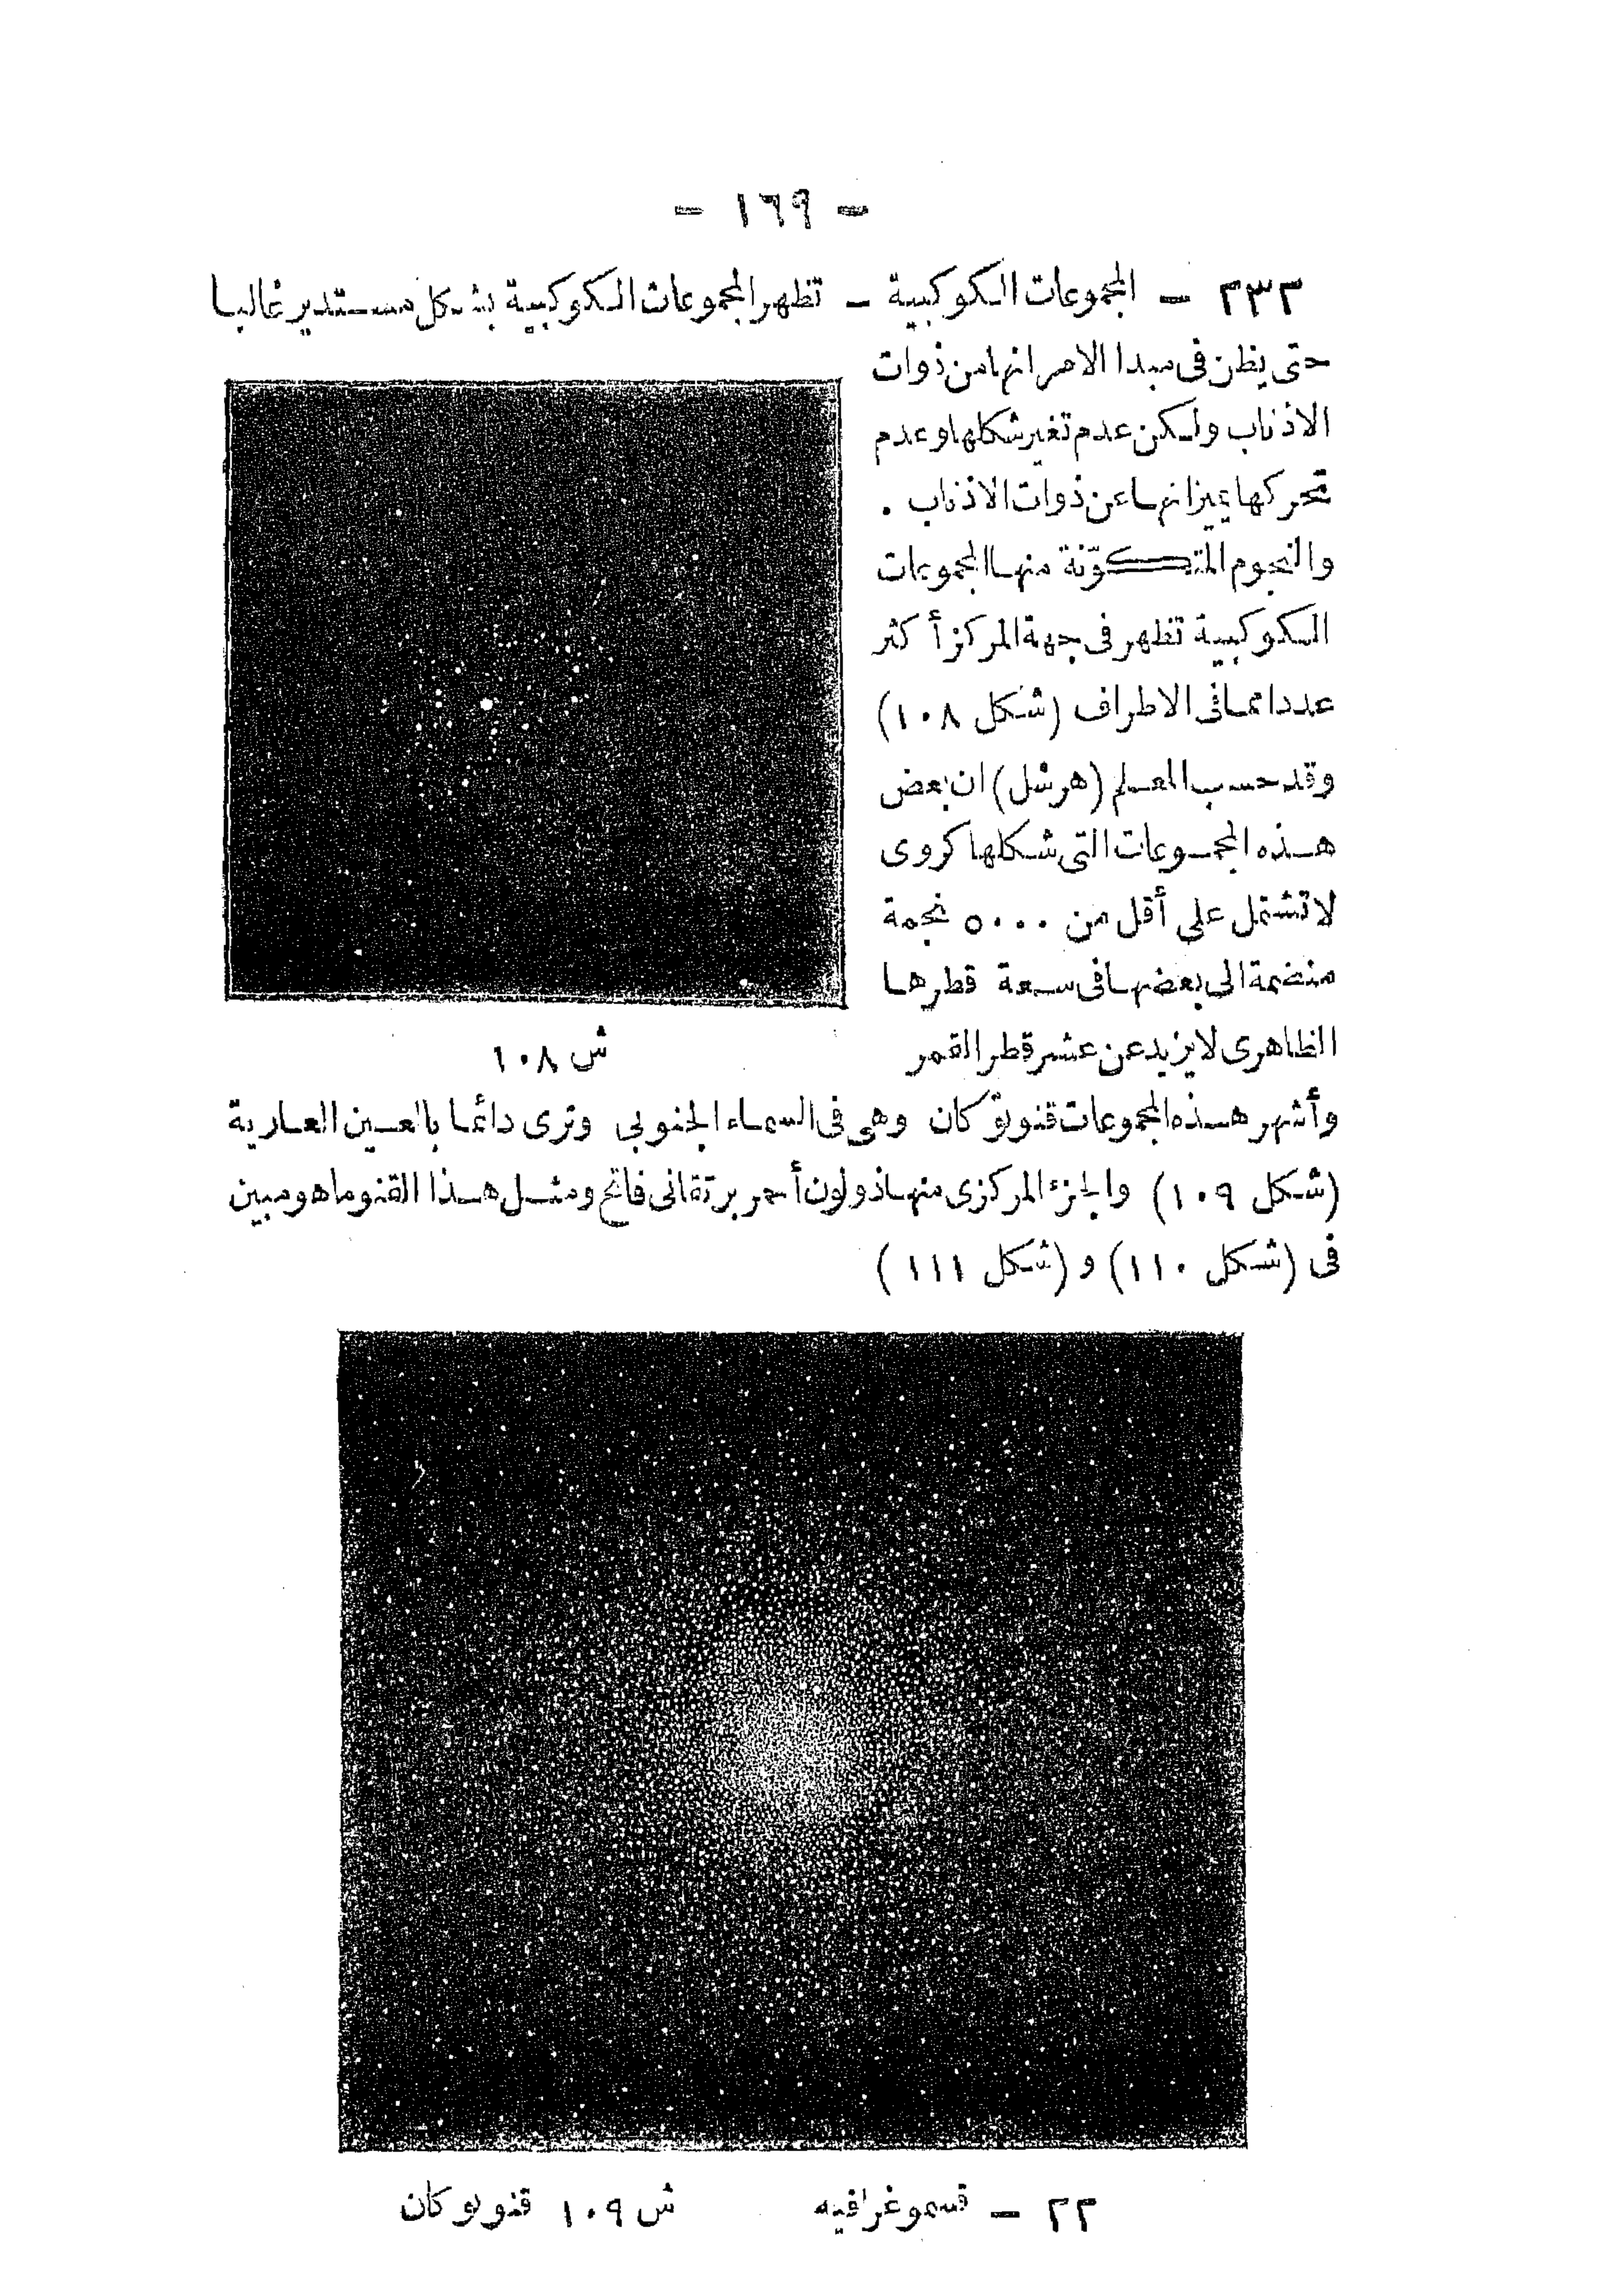 - ١٦٩ -
٢٣٣ - المجموعات الكوكبية - تظهر المجموعات الكوكبية بشكل مستدير غالبا
حتى يظن فى مبدا الامر انها من ذوات
الاذناب ولكن عدم تغير شكلها وعدم
تحركها يميزانها عن ذوات الاذناب .
والنجوم المتكوّنة منها المجموعات
الكوكبية تظهر فى جهة المركز أكثر
عددا مما فى الاطراف (شكل ١٠٨)
وقد حسب المعلم (هرشل) ان بعض
هذه المجموعات التى شكلها كروى
لا تشتمل على أقل من ٥٠٠٠ نجمة
منضمة الى بعضها فى سعة قطرها
الظاهرى لا يزيد عن عشر قطر القمر
ش ١٠٨
وأشهر هذه المجموعات قنو توكان وهى فى السماء الجنوبى وترى دائما بالعين العارية
(شكل ١٠٩) والجزء المركزى منها ذو لون أحمر برتقانى فاتح ومثل هذا القنو ما هو مبين
فى (شكل ١١٠) و (شكل ١١١)
ش ١٠٩ قنو توكان
٢٢ - قسموغرافيه